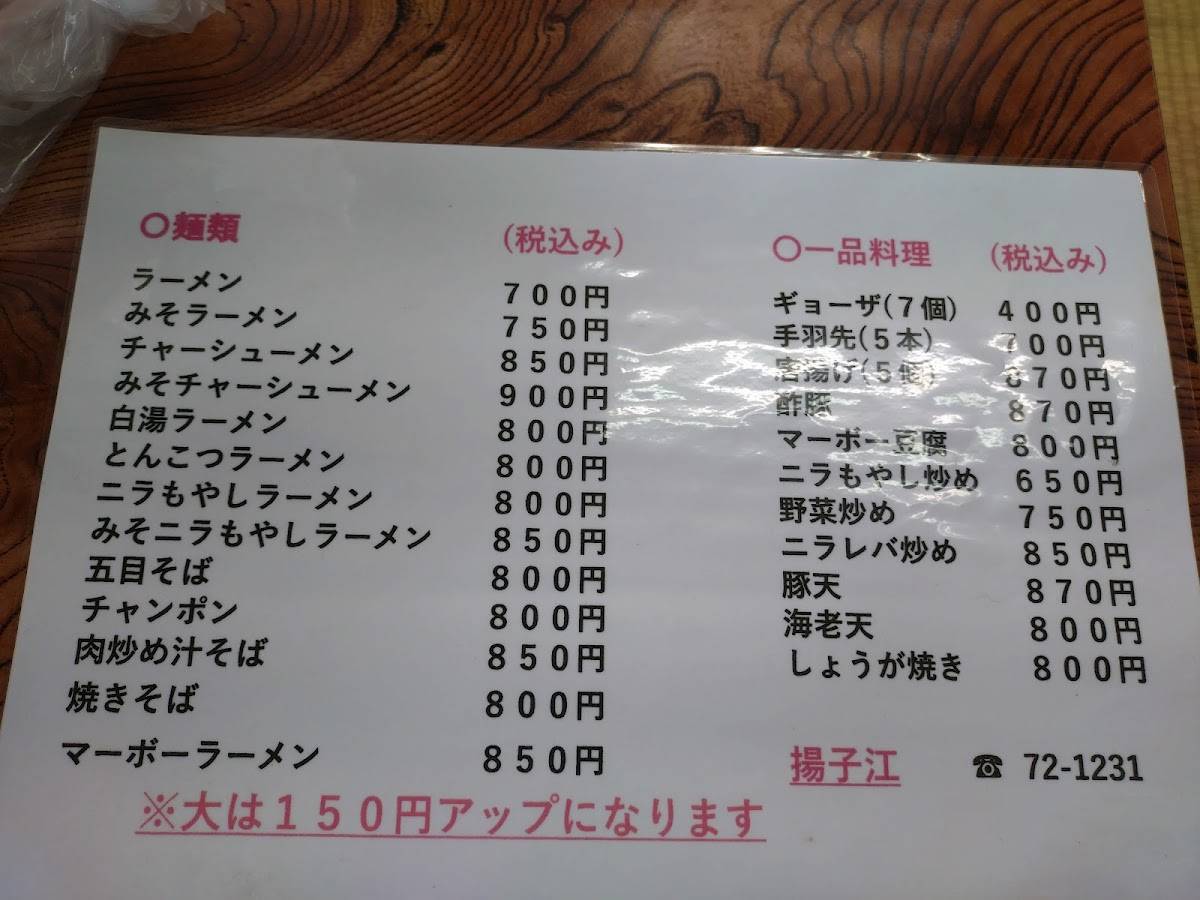 〇麺類 (税込み)
ラーメン 700円
みそラーメン 750円
チャーシューメン 850円
みそチャーシューメン 900円
白湯ラーメン 800円
とんこつラーメン 800円
ニラもやしラーメン 800円
みそニラもやしラーメン 850円
五目そば 800円
チャンポン 800円
肉炒め汁そば 850円
焼きそば 800円
マーボーラーメン 850円
※大は150円アップになります
〇一品料理 (税込み)
ギョーザ(7個) 400円
手羽先(5本) 700円
唐揚げ(5個) 870円
酢豚 870円
マーボー豆腐 800円
ニラもやし炒め 650円
野菜炒め 750円
ニラレバ炒め 850円
豚天 870円
海老天 800円
しょうが焼き 800円
揚子江 ☎ 72-1231